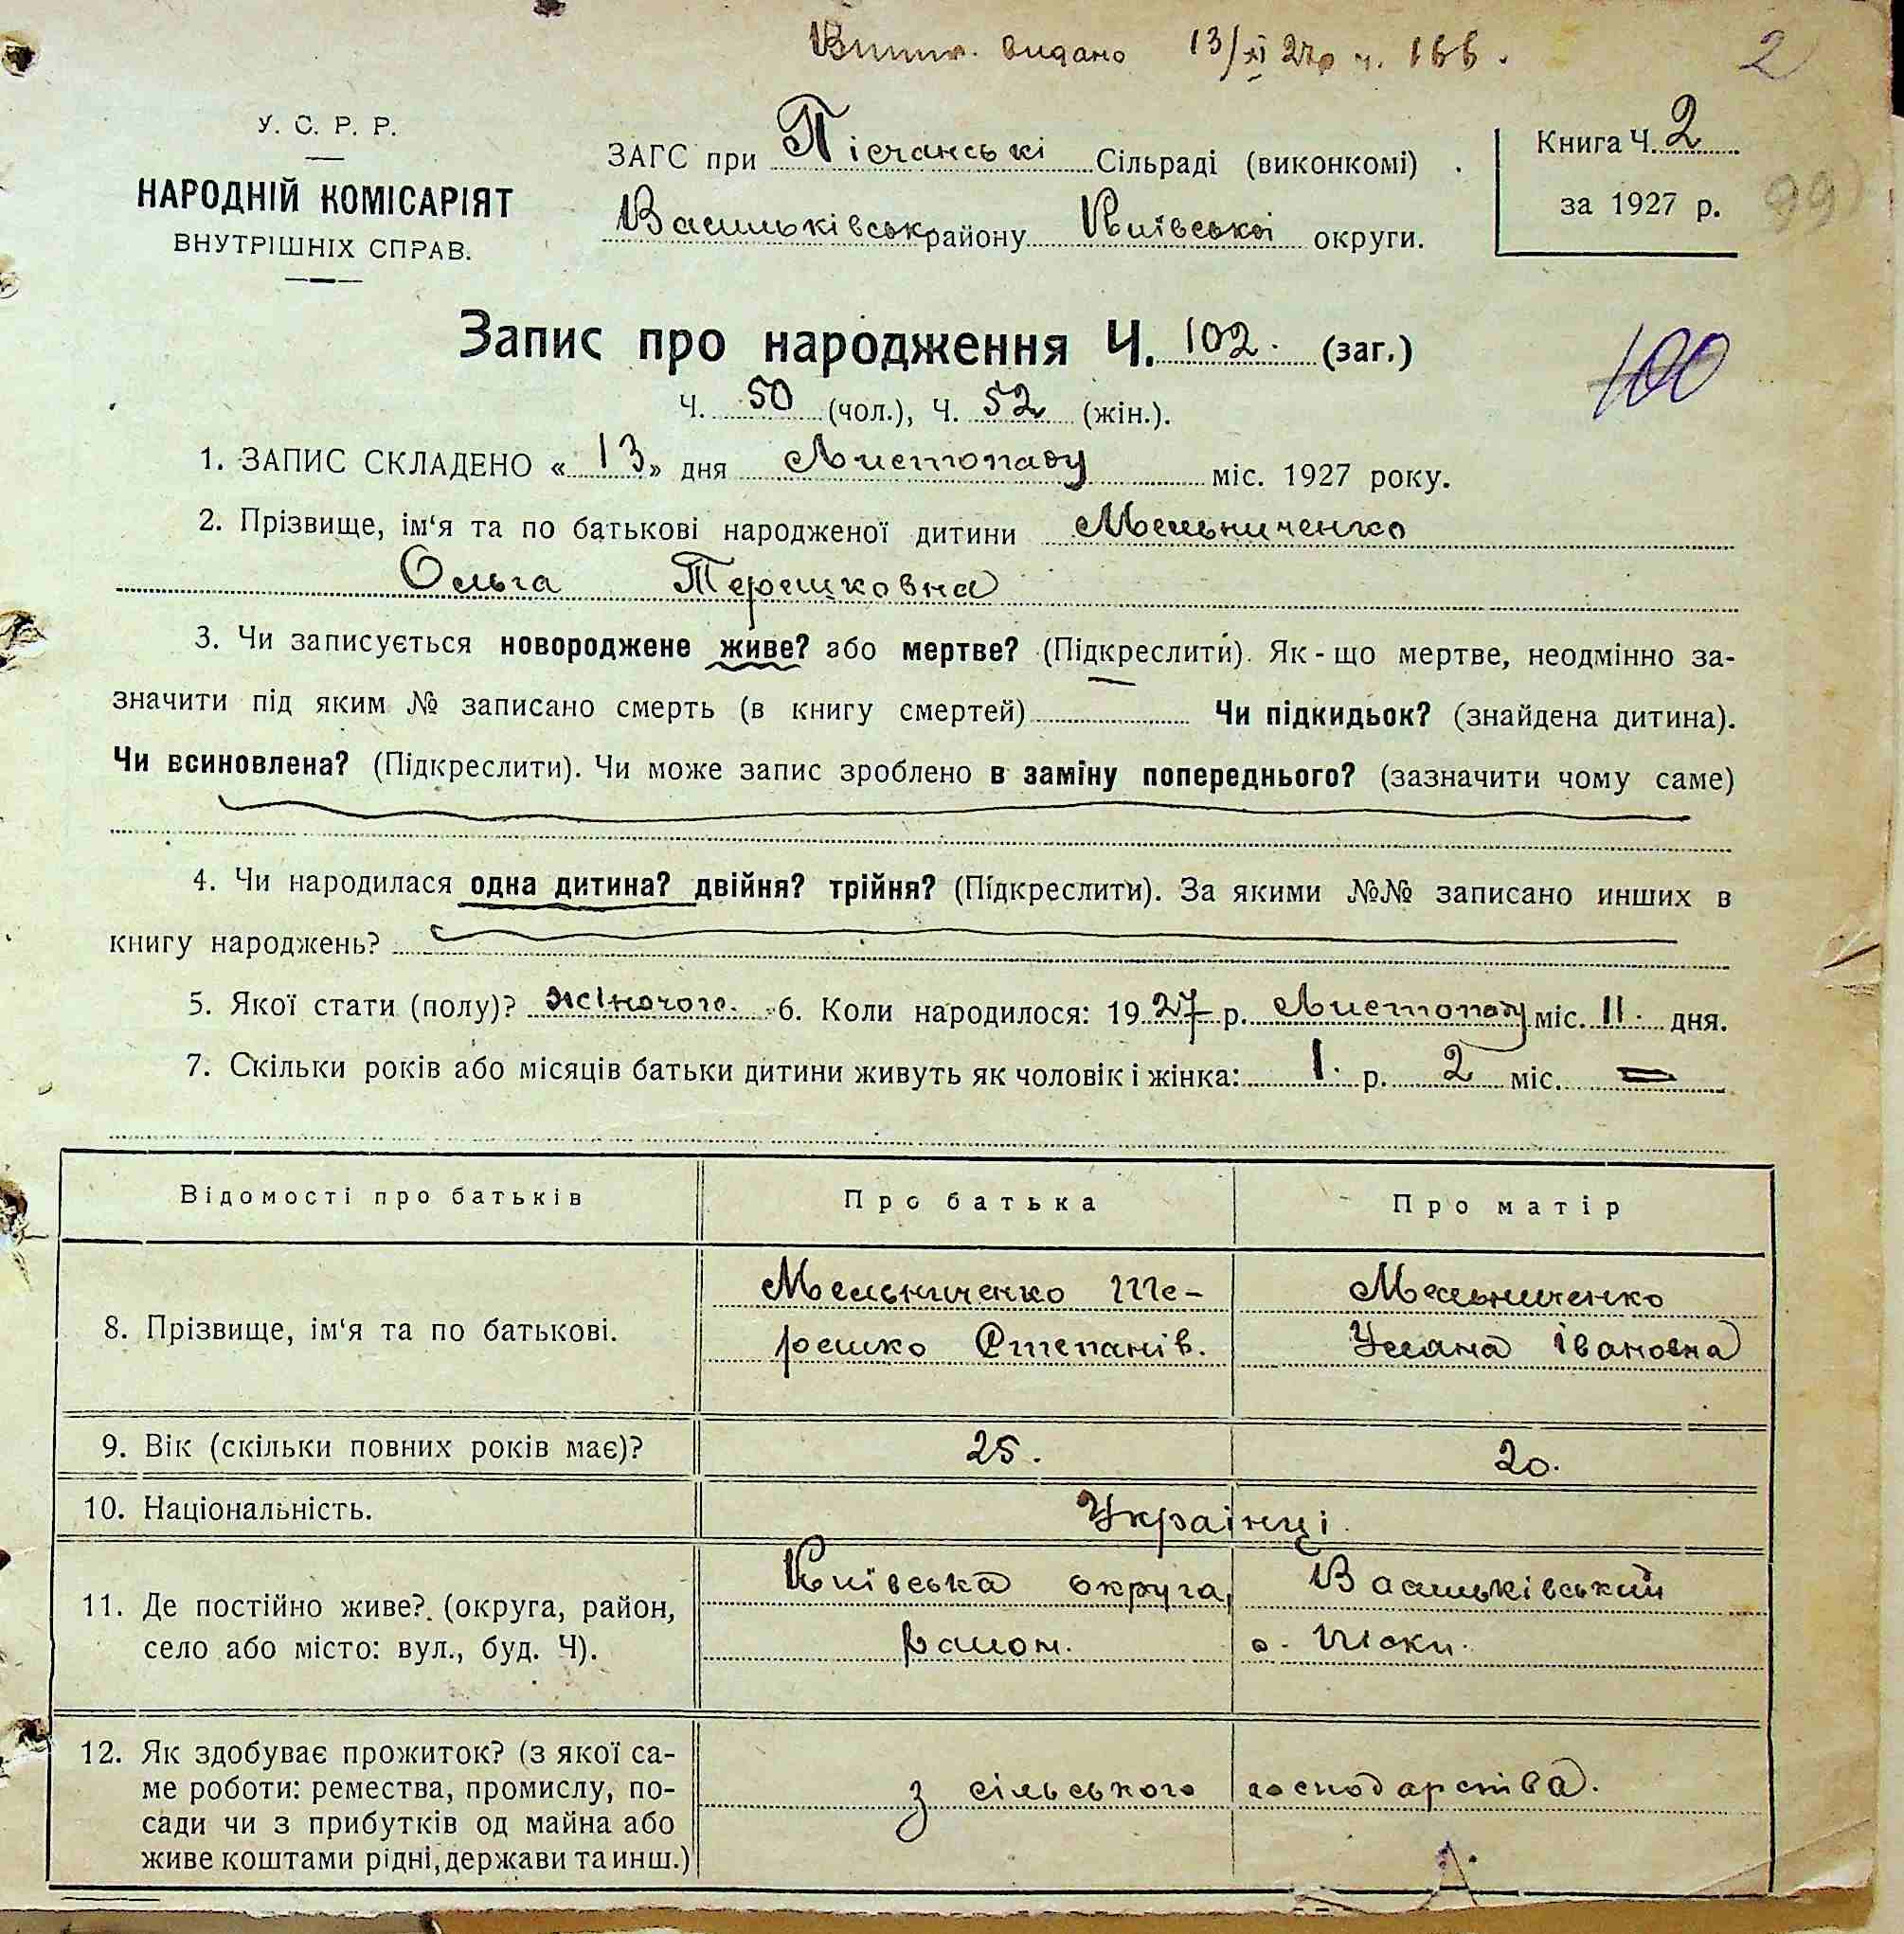 Витяг видано 13/XI 27р ч. 166.
2
У. С. Р. Р.
НАРОДНІЙ КОМІСАРІЯТ
ВНУТРІШНІХ СПРАВ.
ЗАГС при Пісчанські Сільраді (виконкомі)
Васильківськ району Київської округи.
Книга Ч. 2
за 1927 р.
99
Запис про народження Ч. 102. (заг.)
100
Ч. 50 (чол.), Ч. 52 (жін.).
1. ЗАПИС СКЛАДЕНО « 13 » дня Листопаду міс. 1927 року.
2. Прізвище, ім‘я та по батькові народженої дитини Мельниченко
Ольга Терешковна
3. Чи записується новороджене живе? або мертве? (Підкреслити). Як-що мертве, неодмінно за-
значити під яким № записано смерть (в книгу смертей) Чи підкидьок? (знайдена дитина).
Чи всиновлена? (Підкреслити). Чи може запис зроблено в заміну попереднього? (зазначити чому саме)
4. Чи народилася одна дитина? двійня? трійня? (Підкреслити). За якими №№ записано инших в
книгу народжень?
5. Якої стати (полу)? жіночого. 6. Коли народилося: 1927 р. Листопаду міс. 11. дня.
7. Скільки років або місяців батьки дитини живуть як чоловік і жінка: 1. р. 2 міс.
Відомості про батьків Про батька Про матір
8. Прізвище, ім‘я та по батькові.
Мельниченко Те-
решко Степанів.
Мельниченко
Уляна Івановна
9. Вік (скільки повних років має)? 25. 20.
10. Національність. Українці.
11. Де постійно живе? (округа, район,
село або місто: вул., буд. Ч).
Київська округа, Васильківський
район. с. Піски.
12. Як здобуває прожиток? (з якої са-
ме роботи: ремества, промислу, по-
сади чи з прибутків од майна або
живе коштами рідні, держави та инш.)
з сільського господарства.